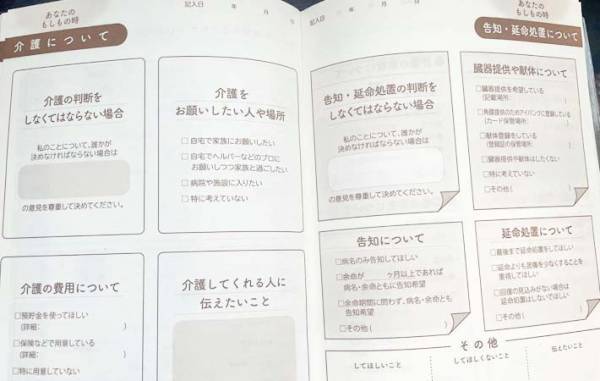 あなたの
もしもの時
記入日 年 月 日
介護について
介護の判断を
しなくてはならない場合
私のことについて、誰かが
決めなければならない場合は
の意見を尊重して決めてください。
介護を
お願いしたい人や場所
□自宅で家族にお願いしたい
□自宅でヘルパーなどのプロに
お願いしつつ家族と過ごしたい
□病院や施設に入りたい
□特に考えていない
介護の費用について
□預貯金を使ってほしい
(詳細: )
□保険などで用意している
(詳細: )
□特に用意していない
介護してくれる人に
伝えたいこと
記入日 年 月 日
あなたの
もしもの時
告知・延命処置について
告知・延命処置の判断を
しなくてはならない場合
私のことについて、誰かが
決めなければならない場合は
の意見を尊重して決めてください。
臓器提供や献体について
□臓器提供を希望している
(記載場所: )
□角膜提供のためアイバンクに登録している
(カード保管場所: )
□献体登録をしている
(登録証の保管場所: )
□臓器提供や献体はしたくない
□特に考えていない
□その他( )
告知について
□病名のみ告知してほしい
□余命が ヶ月以上であれば
病名・余命ともに告知希望
□余命期間に問わず、病名・余命とも
告知希望
□その他( )
延命処置について
□最後まで延命処置をしてほしい
□延命よりも苦痛を少なくすることを
重視してほしい
□回復の見込みがない場合は
延命処置はしないでほしい
□その他( )
その他
してほしいこと
してほしくないこと
伝えたいこと